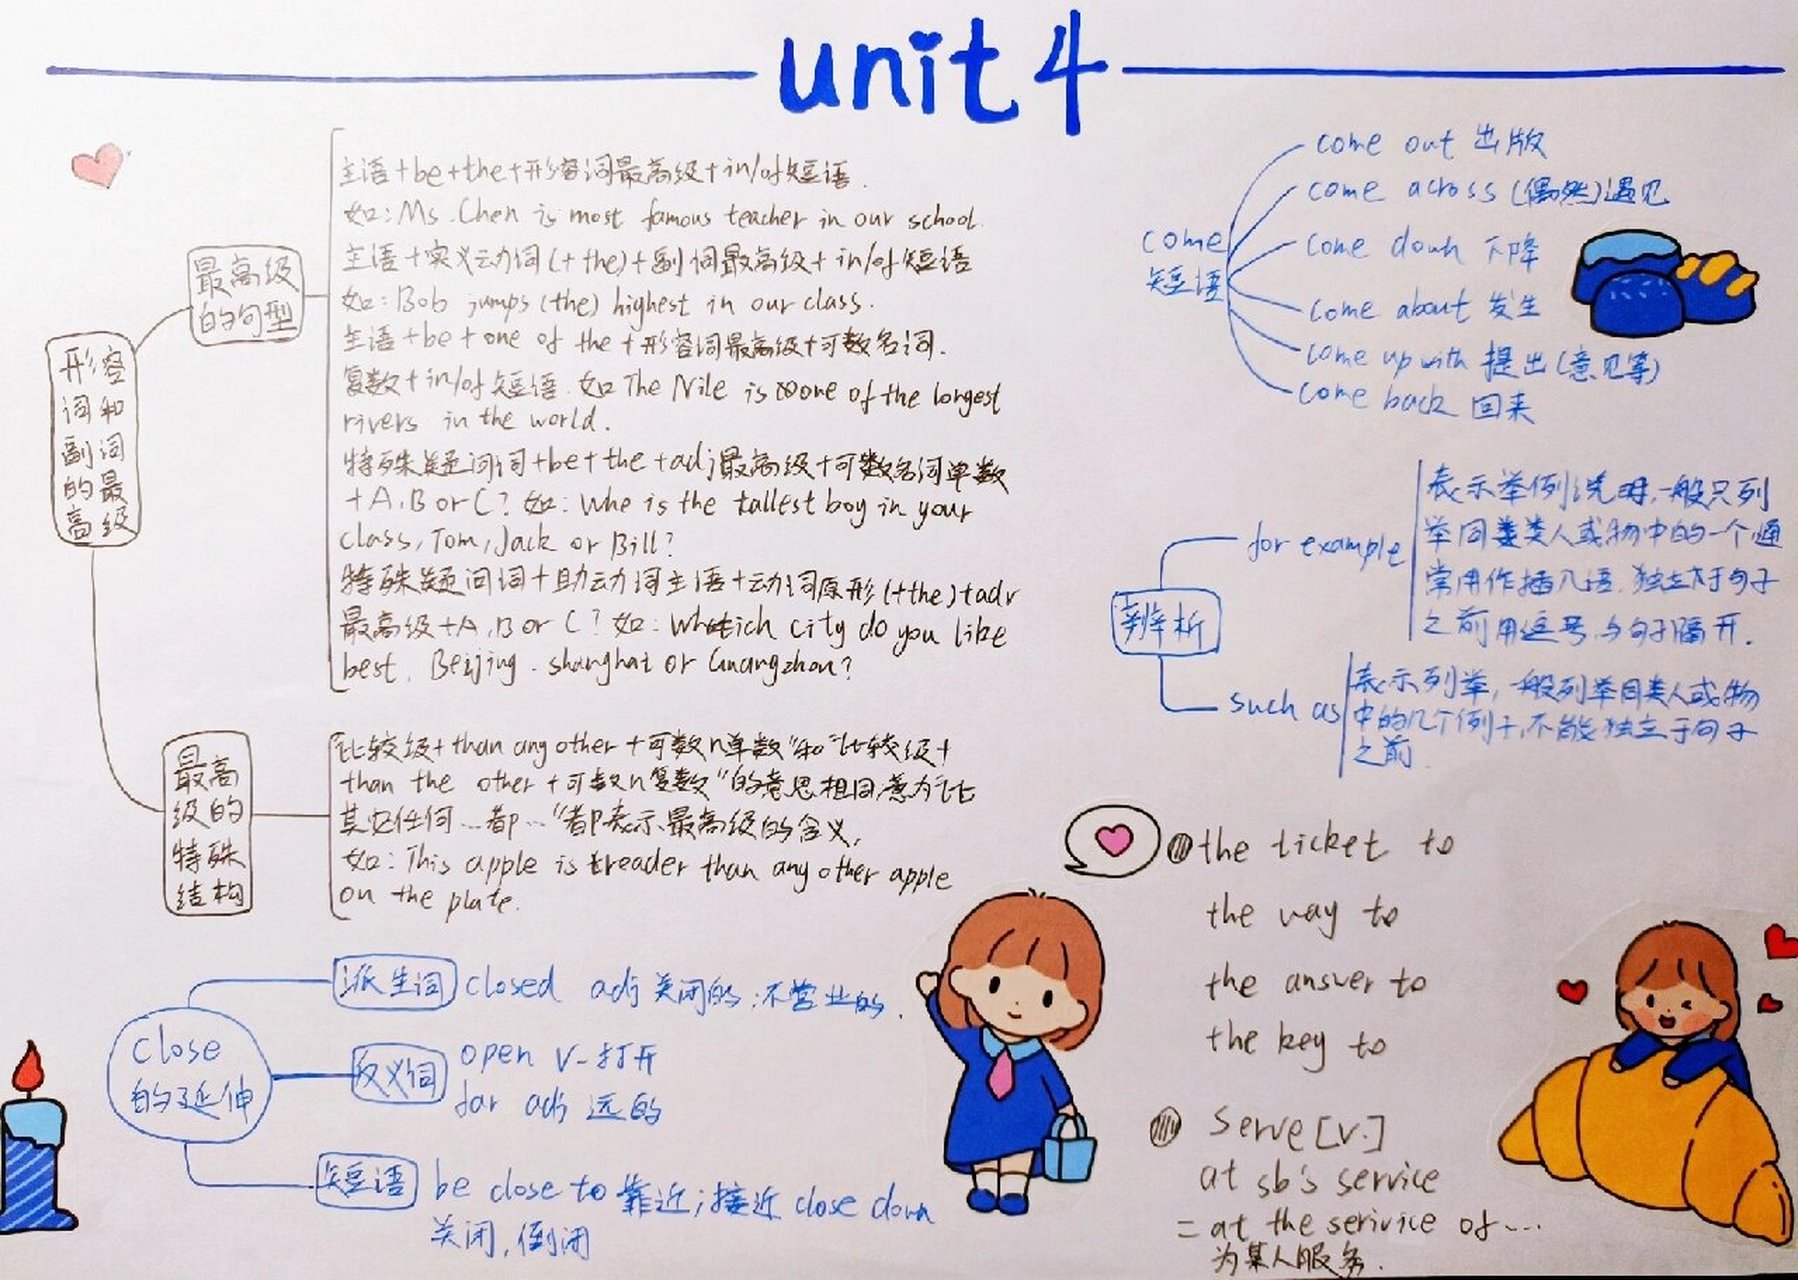 unit 4
形容
词和
副词
的最
高级
最高级
的句型
主语+be+the+形容词最高级+in/of短语.
如:Ms.Chen is most famous teacher in our school.
主语+实义动词(+the)+副词最高级+in/of短语
如:Bob jumps (the) highest in our class.
主语+be+one of the+形容词最高级+可数名词.
复数+in/of短语.如The Nile is one of the longest
rivers in the world.
特殊疑问词+be+the+adj最高级+可数名词单数
+A,B or C? 如: Whe is the tallest boy in your
class, Tom, Jack or Bill?
特殊疑问词+助动词主语+动词原形(+the)+adv
最高级+A,B or C? 如: Which city do you like
best. Beijing. shanghai or Guangzhou?
最高
级的
特殊
结构
比较级+than any other+可数n单数"和"比较级+
than the other+可数n复数"的意思相同意为"比
其它任何…都…"都表示最高级的含义,
如:This apple is treader than any other apple
on the plate.
close
的延伸
派生词 closed adj 关闭的;不营业的.
反义词 open v-打开
far adj 远的
短语 be close to 靠近;接近 close down
关闭,倒闭
come
短语
come out 出版
come across (偶然)遇见
come down 下降
come about 发生
come up with 提出(意见等)
come back 回来
辨析
for example
表示举例说明,一般只列
举同类人或物中的一个,通
常用作插入语.独立于句子
之前用逗号与句子隔开.
such as
表示列举,一般列举同类人或物
中的几个例子,不能独立于句子
之前.
the ticket to
the way to
the answer to
the key to
serve [v.]
at sb's service
= at the serivice of ...
为某人服务.